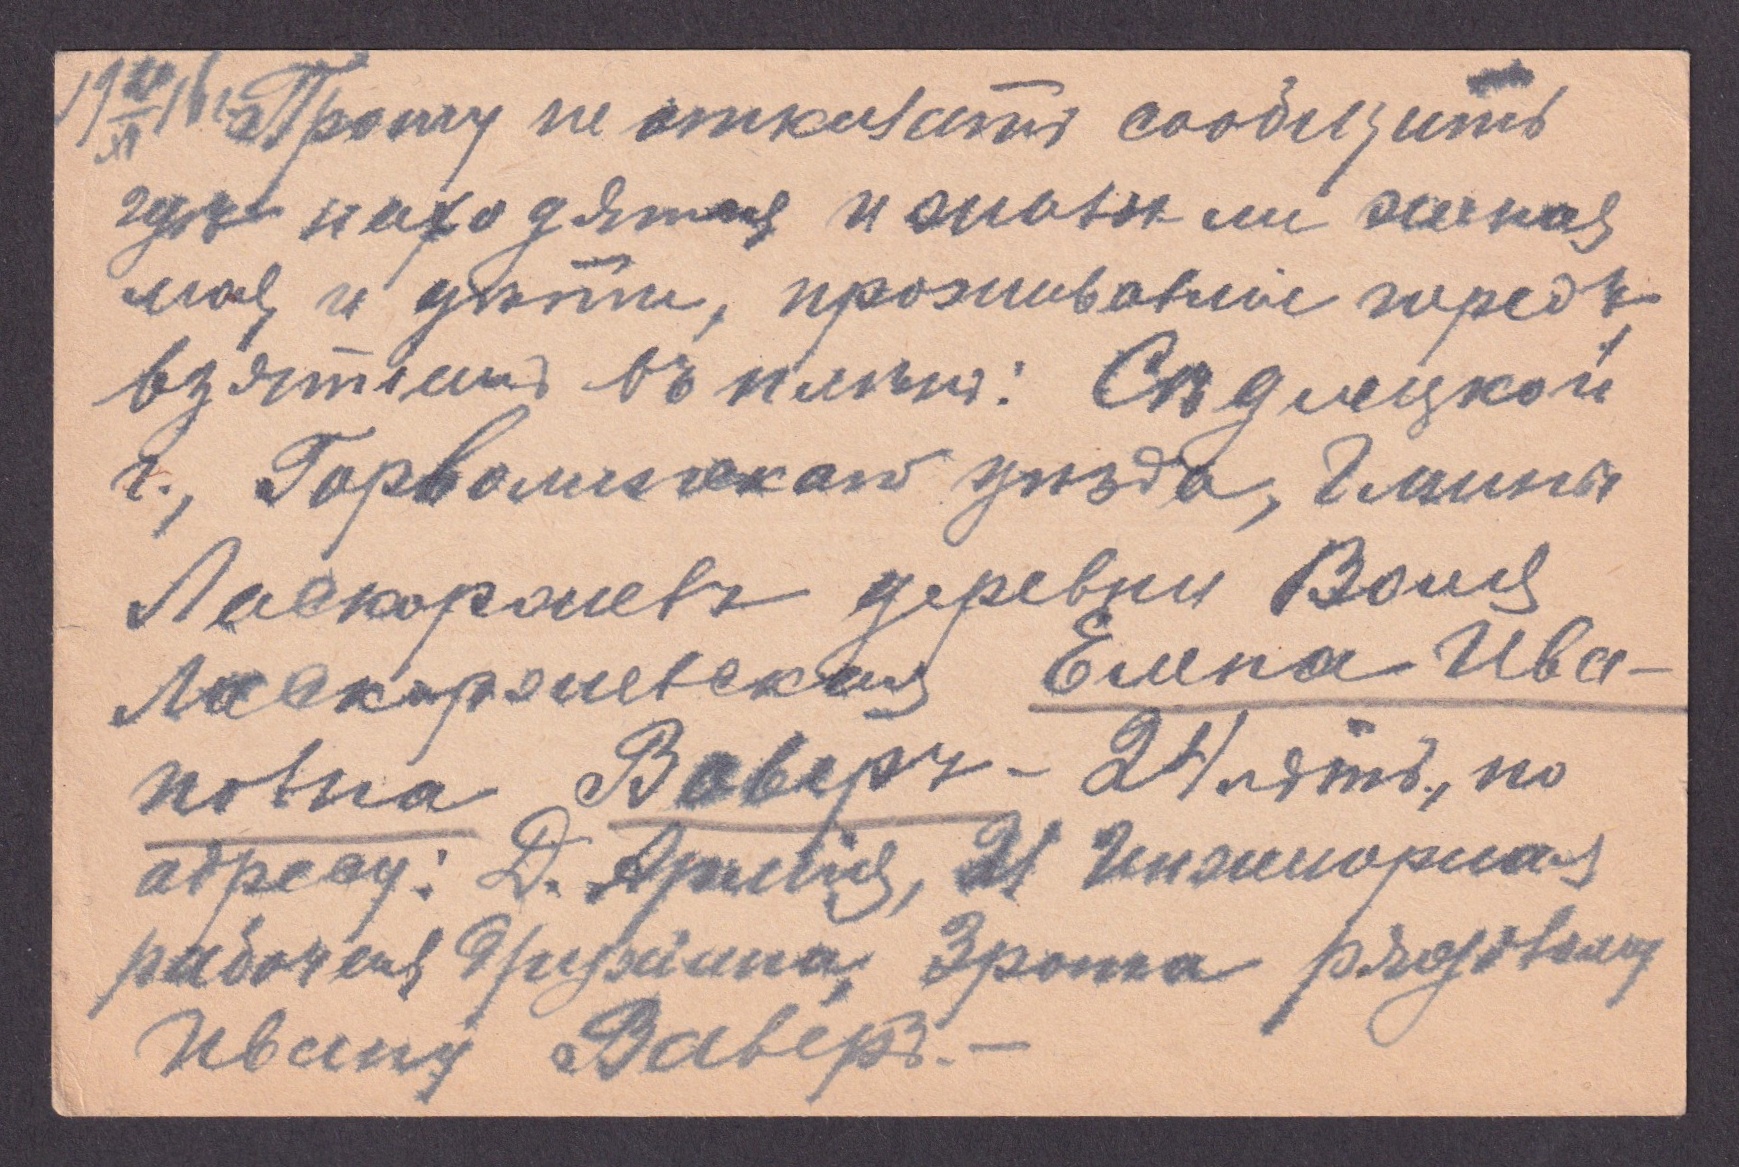 19 20/XI 16 г. Прошу не отказать сообщить
гдѣ находятся и живы ли жена
моя и дѣти, проживавшіе передъ
взятіемъ въ плѣнъ: Сѣдлецкой
г., Гарволинскаго уѣзда, гмины
Ласкаржевъ деревни Воля
Ласкаржевская Елена Ива-
новна Ваверъ - 24 лѣтъ, по
адресу: Д. Армія, 21 Инженерная
рабочая дружина, 3 рота рядовому
Ивану Ваверъ. —